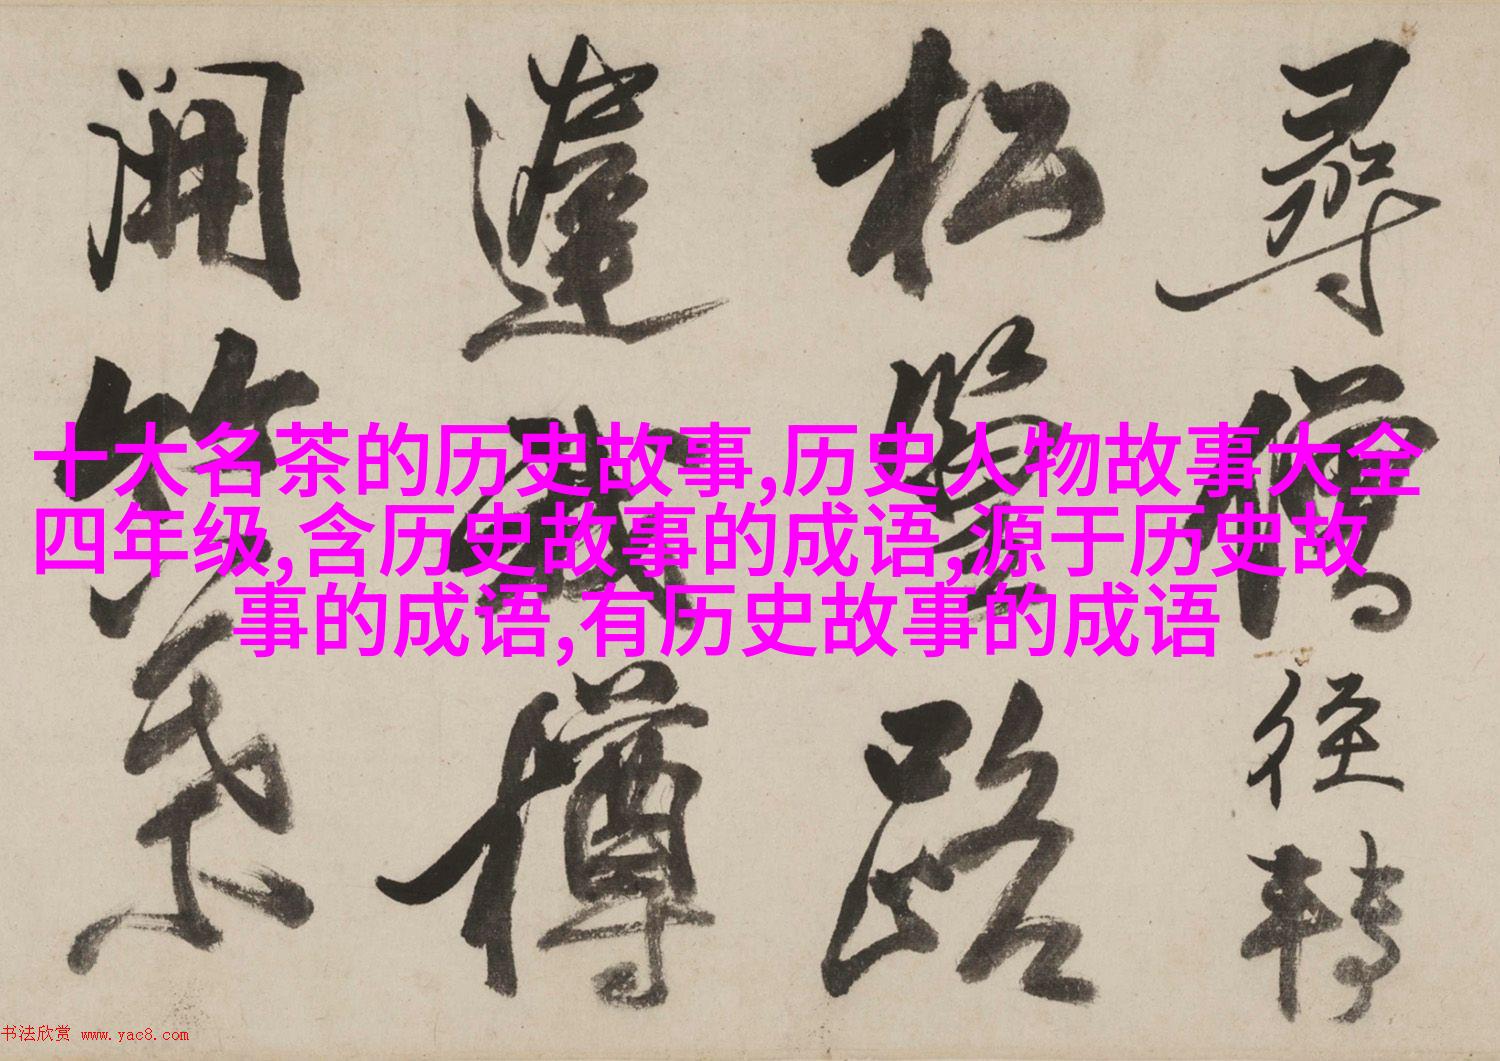 尋僧徑轉
松路
樽
開
十大名茶的历史故事,历史人物故事大全
四年级,含历史故事的成语,源于历史故
事的成语,有历史故事的成语
书法欣赏 www.yac8.com